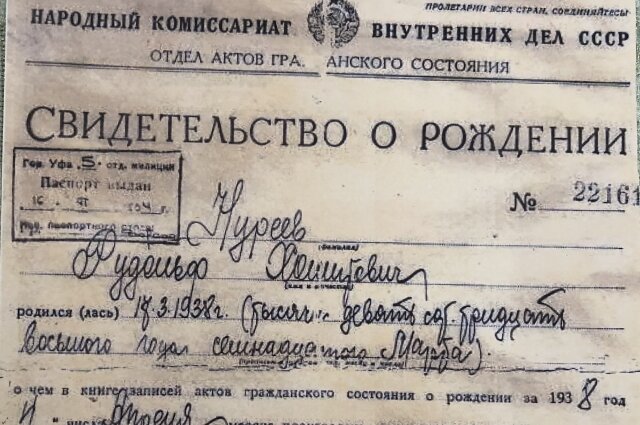 ПРОЛЕТАРИИ ВСЕХ СТРАН, СОЕДИНЯЙТЕСЬ!
НАРОДНЫЙ КОМИССАРИАТ ВНУТРЕННИХ ДЕЛ СССР
ОТДЕЛ АКТОВ ГРА АНСКОГО СОСТОЯНИЯ
СВИДЕТЕЛЬСТВО О РОЖДЕНИИ
Гор. Уфа 5 отд. милиции
Паспорт выдан
№ 22161
Нуреев
(фамилия)
Рудольф Хамитович
(имя и отчество)
родился (лась) 17.3.1938г. (тысяч девятьсот тридцать
восьмого года семнадцатого Марта).
о чем в книге записей актов гражданского состояния о рождении за 1938 год
числа Апреля